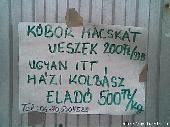 KÓBOR MACSKÁT
VESZEK 200Ft/DB
UGYAN ITT
HÁZI KOLBÁSZ
ELADÓ 500Ft/kg